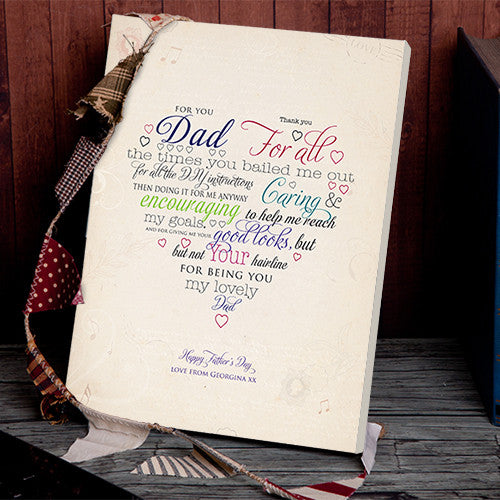 FOR YOU
Thank you
Dad For all
the times you bailed me out
for all the DIY instructions
THEN DOING IT FOR ME ANYWAY
Caring &
encouraging to help me reach
my goals.
AND FOR GIVING ME YOUR good looks, but
but not Your hairline
FOR BEING YOU
my lovely
Dad
Happy Father's Day
LOVE FROM GEORGINA XX